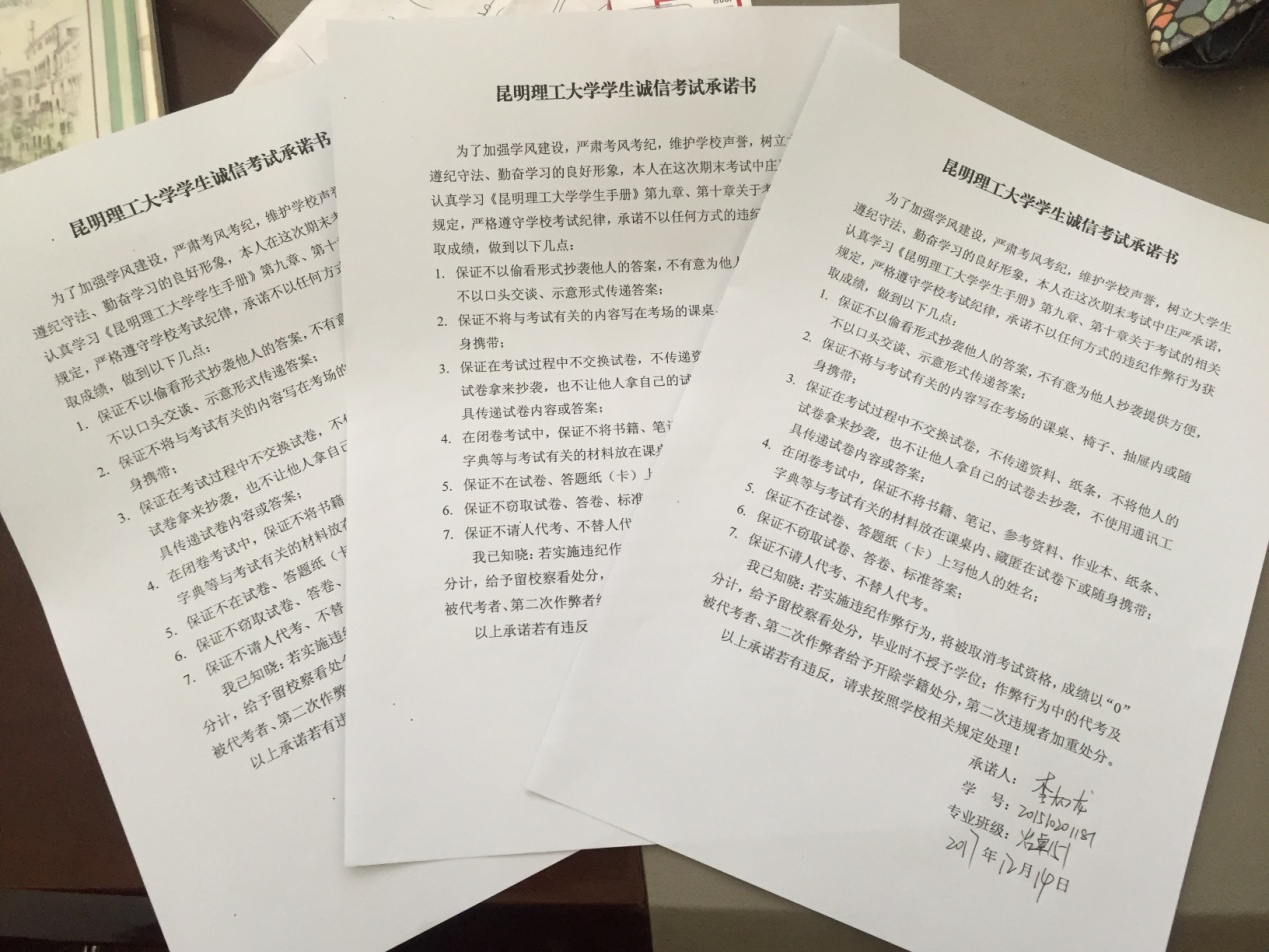 昆明理工大学学生诚信考试承诺书
为了加强学风建设，严肃考风考纪，维护学校声誉
遵纪守法、勤奋学习的良好形象，本人在这次期末考
认真学习《昆明理工大学学生手册》第九章、第十
规定，严格遵守学校考试纪律，承诺不以任何方式
取成绩，做到以下几点：
1. 保证不以偷看形式抄袭他人的答案，不有意
不以口头交谈、示意形式传递答案；
2. 保证不将与考试有关的内容写在考场的
身携带；
3. 保证在考试过程中不交换试卷，不
试卷拿来抄袭，也不让他人拿自己
具传递试卷内容或答案；
4. 在闭卷考试中，保证不将书籍
字典等与考试有关的材料放在
5. 保证不在试卷、答题纸（卡
6. 保证不窃取试卷、答卷、
7. 保证不请人代考、不替
我已知晓：若实施违纪
分计，给予留校察看处分
被代考者、第二次作弊
以上承诺若有违
昆明理工大学学生诚信考试承诺书
为了加强学风建设，严肃考风考纪，维护学校声誉，树立
遵纪守法、勤奋学习的良好形象，本人在这次期末考试中庄
认真学习《昆明理工大学学生手册》第九章、第十章关于考
规定，严格遵守学校考试纪律，承诺不以任何方式的违纪
取成绩，做到以下几点：
1. 保证不以偷看形式抄袭他人的答案，不有意为他人
不以口头交谈、示意形式传递答案；
2. 保证不将与考试有关的内容写在考场的课桌、
身携带；
3. 保证在考试过程中不交换试卷，不传递资
试卷拿来抄袭，也不让他人拿自己的试
具传递试卷内容或答案；
4. 在闭卷考试中，保证不将书籍、笔记
字典等与考试有关的材料放在课桌
5. 保证不在试卷、答题纸（卡）上
6. 保证不窃取试卷、答卷、标准
7. 保证不请人代考、不替人代
我已知晓：若实施违纪作
分计，给予留校察看处分，
被代考者、第二次作弊者给
以上承诺若有违反
昆明理工大学学生诚信考试承诺书
为了加强学风建设，严肃考风考纪，维护学校声誉，树立大学生
遵纪守法、勤奋学习的良好形象，本人在这次期末考试中庄严承诺，
认真学习《昆明理工大学学生手册》第九章、第十章关于考试的相关
规定，严格遵守学校考试纪律，承诺不以任何方式的违纪作弊行为获
取成绩，做到以下几点：
1. 保证不以偷看形式抄袭他人的答案，不有意为他人抄袭提供方便，
不以口头交谈、示意形式传递答案；
2. 保证不将与考试有关的内容写在考场的课桌、椅子、抽屉内或随
身携带；
3. 保证在考试过程中不交换试卷，不传递资料、纸条，不将他人的
试卷拿来抄袭，也不让他人拿自己的试卷去抄袭，不使用通讯工
具传递试卷内容或答案；
4. 在闭卷考试中，保证不将书籍、笔记、参考资料、作业本、纸条、
字典等与考试有关的材料放在课桌内、藏匿在试卷下或随身携带；
5. 保证不在试卷、答题纸（卡）上写他人的姓名；
6. 保证不窃取试卷、答卷、标准答案；
7. 保证不请人代考、不替人代考。
我已知晓：若实施违纪作弊行为，将被取消考试资格，成绩以“0”
分计，给予留校察看处分，毕业时不授予学位；作弊行为中的代考及
被代考者、第二次作弊者给予开除学籍处分，第二次违规者加重处分。
以上承诺若有违反，请求按照学校相关规定处理！
承诺人：
学 号：201510201187
专业班级：冶卓151
2017年12月14日